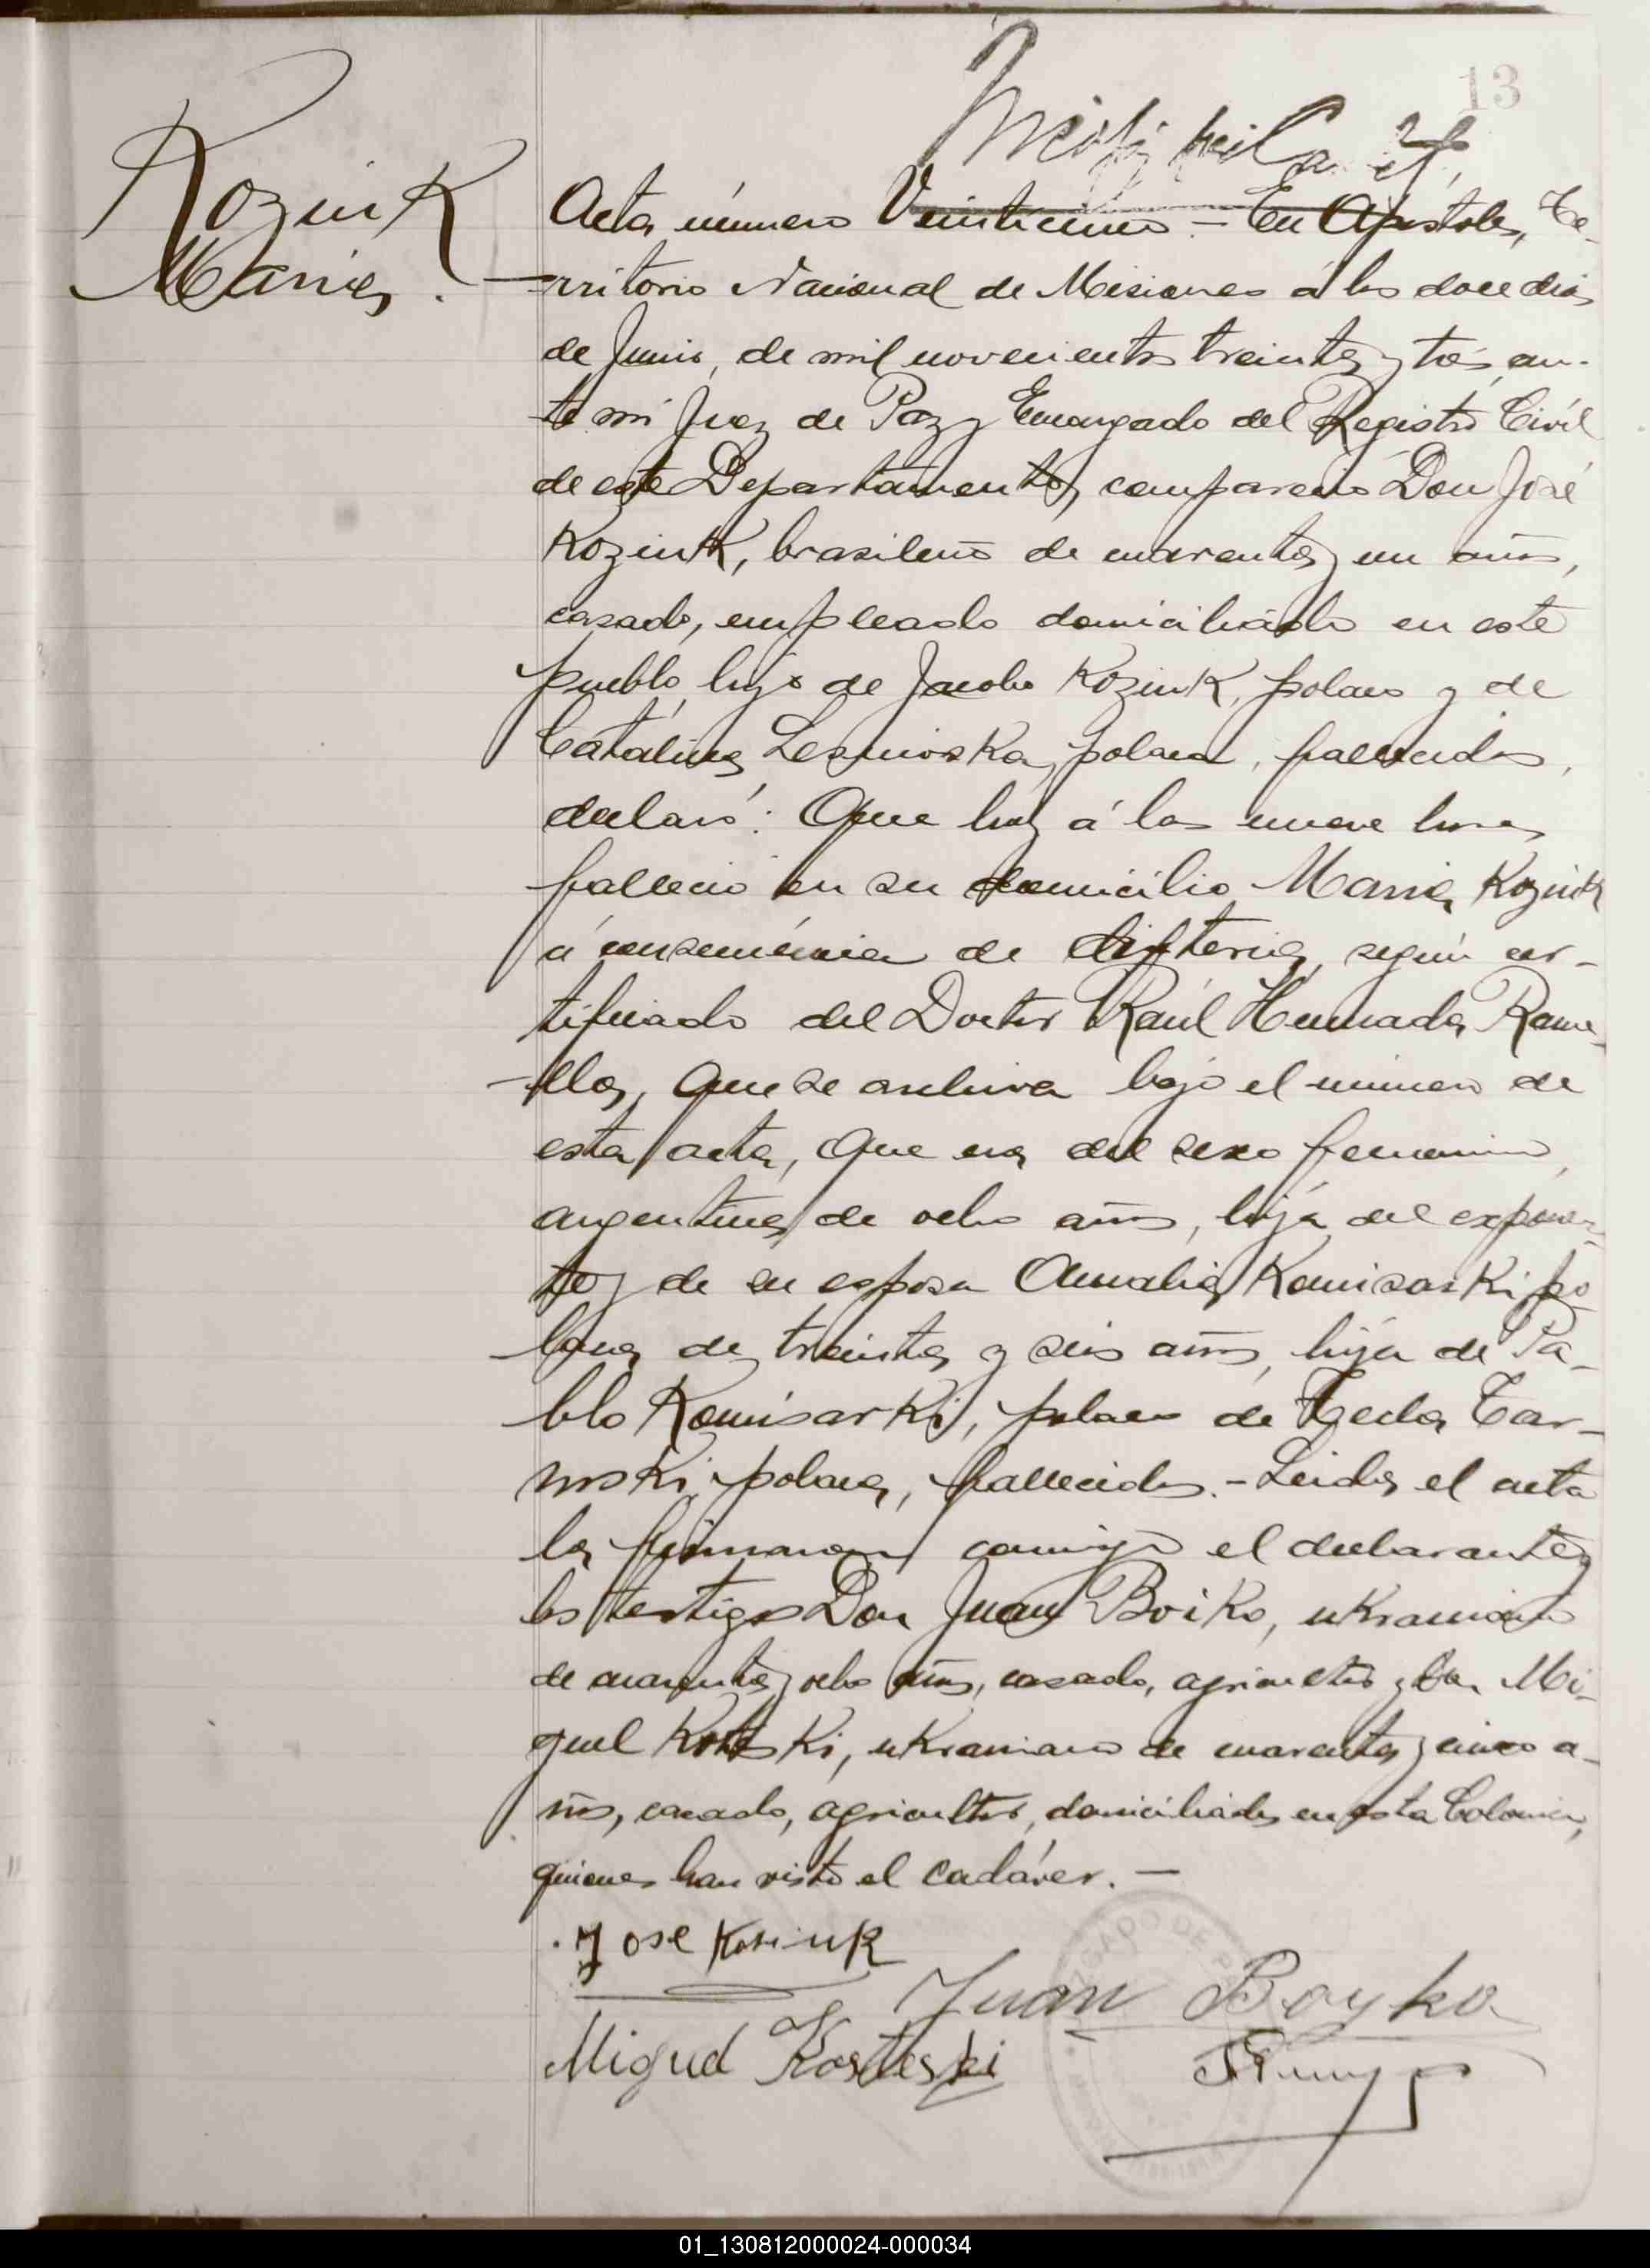 13
Koziuk
Maria.
Acta número Veinticinco - En Apóstoles, Te-
rritorio Nacional de Misiones á los doce dias
de Junio, de mil novecientos treinta y tres, an-
te mi Juez de Paz y Encargado del Registro Civil
de este Departamento, compareció Don José
Koziuk, brasileño de cuarenta y un años,
casado, empleado domiciliado en este
pueblo, hijo de Jacobo Koziuk, polaco y de
Catalina, polaca, fallecidos,
declaró: Que hoy á las nueve horas
falleció en su domicilio Maria Koziuk
á consecuencia de difteria, según cer-
tificado del Doctor Raúl Rame-
lla, que se archiva bajo el número de
esta acta, que era del sexo femenino,
argentina de ocho años, hija del exponen-
te y de su esposa Amalia Komisarki po-
laca de treinta y seis años, hija de Pa-
blo Komisarki, polaco de Tecla Tar-
noski, polaca, fallecidos.- Leida el acta
la firmaron conmigo el declarante y
los testigos Don Juan Boiko, ukraniano
de cuarenta y ocho años, casado, agricultor y Don Mi-
guel, ukraniano de cuarenta y cinco a-
ños, casado, agricultor, domiciliados en esta Colonia,
quienes han visto el cadáver. -
Jose Kosiuk
Juan Boyko
Miguel Kosteski
JUZGADO DE PAZ
01_130812000024-000034